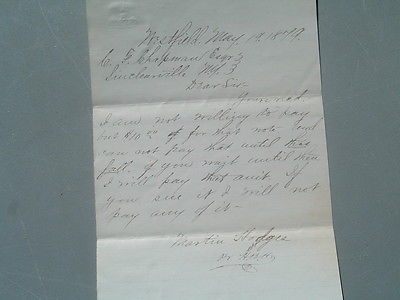 Westfield, May 19, 1879.
C. F. Chapman Esqr
Sinclearville N.Y.
Dear Sir
Yours recd.
I am not willing to pay
but $10.00 for that note and
can not pay that until this
fall. if you wait until then
I will pay that amt. If
you sue it I will not
pay any of it—
Martin Hodges